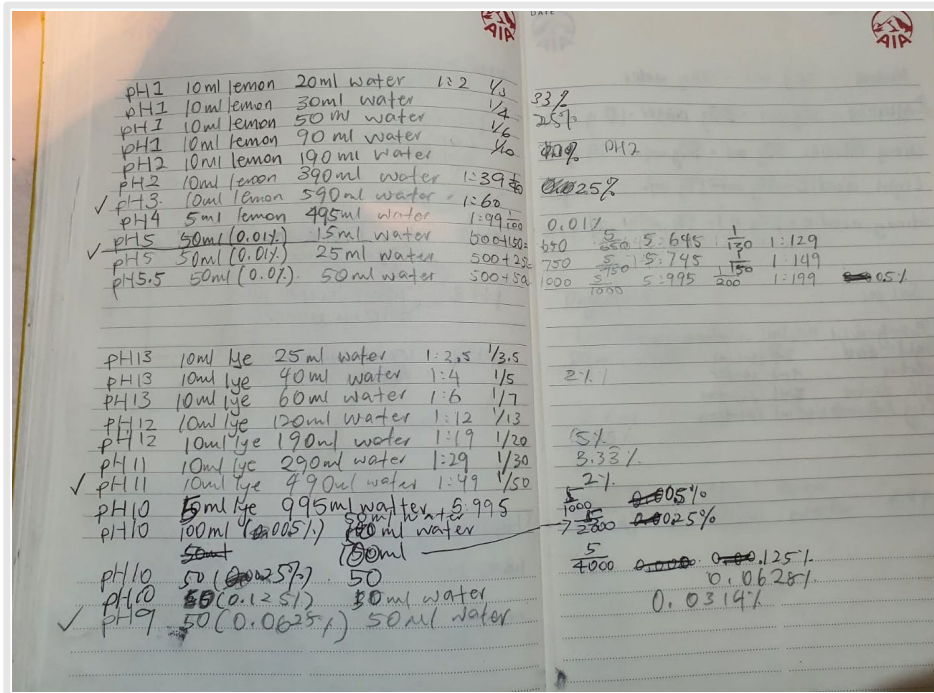 DATE
AIA
AIA
pH1 10ml lemon 20ml water 1:2 1/3
33%
pH1 10ml lemon 30ml water 1/4
25%
pH1 10ml lemon 50ml water 1/6
pH1 10ml lemon 90ml water 1/10
pH2 10ml lemon 190ml water
PH2
pH2 10ml lemon 390ml water 1:39
025%
✓ pH3. 10ml lemon 590ml water 1:60
pH4 5ml lemon 495ml water 1:99 1/100
0.01%
✓ pH5 50ml (0.01%) 15ml water 500+150=
650 5/650 5:645 1/130 1:129
pH5 50ml (0.01%) 25ml water 500+25
750 5/750 5:745 1/150 1:149
pH5.5 50ml (0.0%) 50ml water 500+50
1000 5/1000 5:995 1/200 1:199 05%
pH13 10ml lye 25ml water 1:2.5 1/3.5
pH13 10ml lye 40ml water 1:4 1/5
2%
pH13 10ml lye 60ml water 1:6 1/7
pH12 10ml lye 120ml water 1:12 1/13
pH12 10ml lye 190ml water 1:19 1/20
5%
pH11 10ml lye 290ml water 1:29 1/30
3.33%
✓ pH11 10ml lye 490ml water 1:49 1/50
2%
pH10 5ml lye 995ml walter 5:995
5/1000 0.005%
50ml water
pH10 100ml (0.005%) ml water
5/2000 0.0025%
50ml
50ml
5/4000 .125%
pH10 50 (0.0025%) 50
0.0628%
pH10 50 (0.125%) 30ml water
0.0314%
✓ pH9 50 (0.0625%) 50ml water